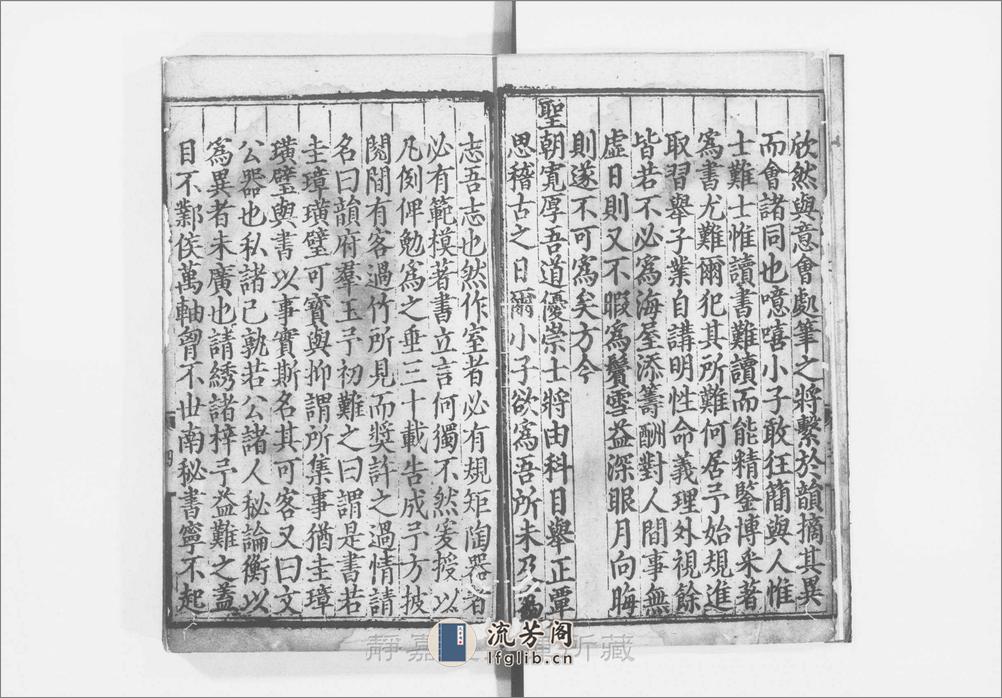 欣然與意會處筆之將繫於韻摘其異
而會諸同也噫嘻小子敢狂簡與人惟
士難士惟讀書難讀而能精鑒博采著
爲書尤難爾犯其所難何居予始規進
取習舉子業自講明性命義理外視餘
皆若不必爲海屋添籌酬對人間事無
虛日則又不暇爲鬢雪益深眼月向晦
則遂不可爲矣方今
聖朝寬厚吾道優崇士將由科目舉正覃
思稽古之日爾小子欲爲吾所未及爲
志吾志也然作室者必有規矩陶器者
必有範模著書立言何獨不然爰授以
凡例俾勉爲之垂三十載告成予方披
閱間有客過竹所見而獎許之過情請
名曰韻府羣玉予初難之曰謂是書若
圭璋璜璧可寶與抑謂所集事猶圭璋
璜璧與書以事實斯名其可客又曰文
公器也私諸己孰若公諸人秘論衡以
爲異者未廣也請綉諸梓予益難之蓋
目不鄴侯萬軸曾不世南秘書寧不起
四
流芳阁
lfglib.cn
靜嘉 所藏